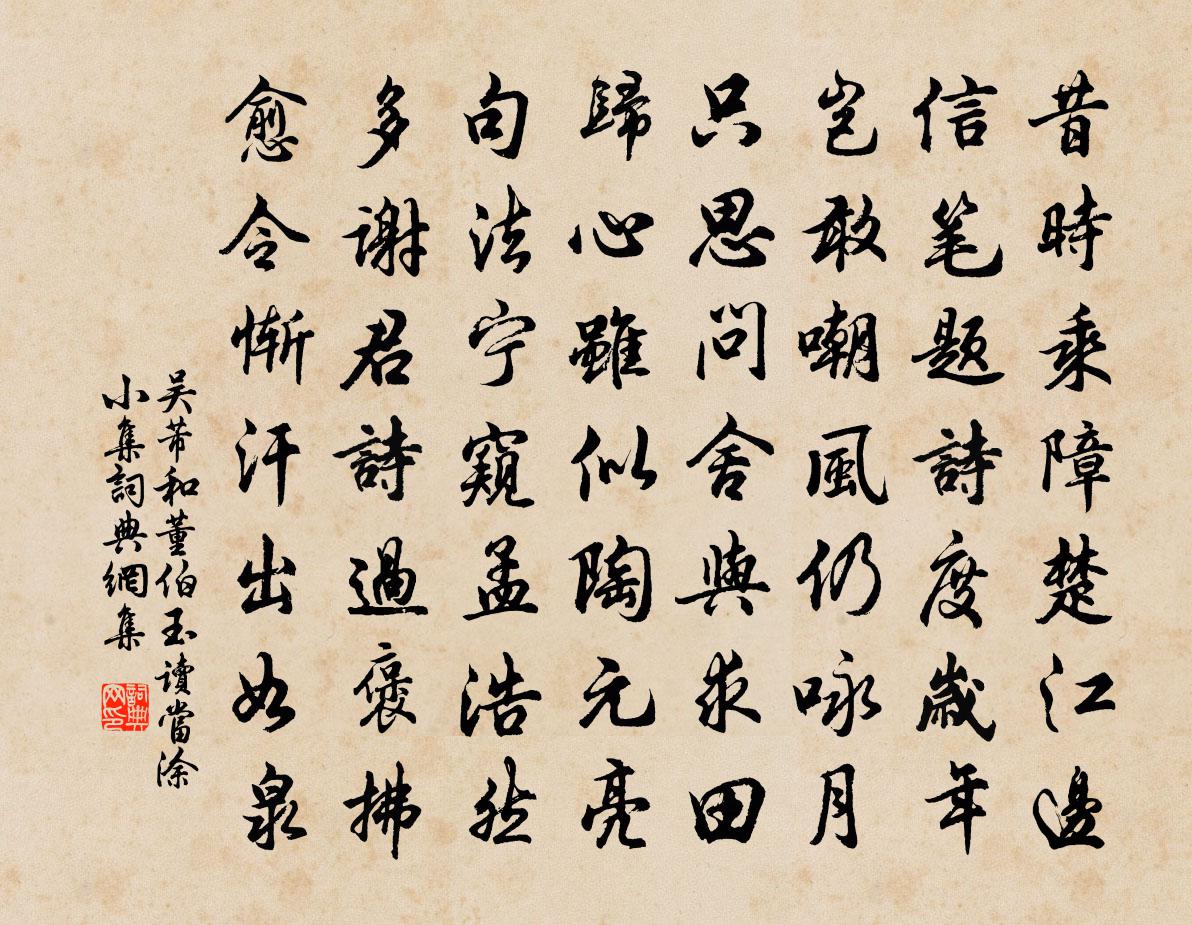 昔時乘障楚江邊
信笔题詩度歲年
豈敢嘲風仍咏月
只思問舍與求田
歸心雖似陶元亮
句法宁窺孟浩然
多謝君詩過褒拂
愈令慚汗出如泉
吴芾和董伯玉讀當涂
小集詞典網集
詞典
网印